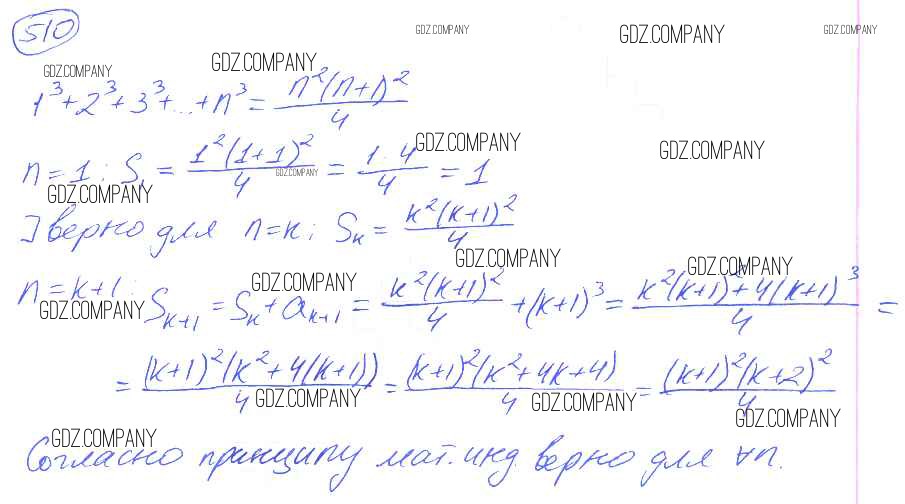 510
GDZ.COMPANY GDZ.COMPANY GDZ.COMPANY
GDZ.COMPANY GDZ.COMPANY
1³+2³+3³+...+n³ = n²(n+1)²/4
GDZ.COMPANY GDZ.COMPANY
n=1: S₁ = 1²(1+1)²/4 = 1·4/4 = 1
GDZ.COMPANY GDZ.COMPANY
] верно для n=k; Sₖ = k²(k+1)²/4
GDZ.COMPANY GDZ.COMPANY
n=k+1:
GDZ.COMPANY GDZ.COMPANY
Sₖ₊₁ = Sₖ + aₖ₊₁ = k²(k+1)²/4 + (k+1)³ = k²(k+1)²+4(k+1)³/4 =
= (k+1)²(k²+4(k+1))/4 = (k+1)²(k²+4k+4)/4 = (k+1)²(k+2)²/4
GDZ.COMPANY GDZ.COMPANY GDZ.COMPANY
GDZ.COMPANY
Согласно принципу мат. инд. верно для ∀n.